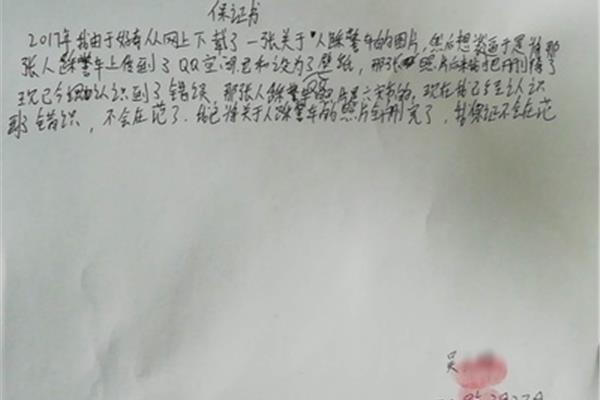 保证书
2017年我由于好奇从网上下载了一张关于"人踩警车的图片,然后想装逼于是将那
张人踩警车上传到了QQ空间和设为了壁纸,那张照片后来把删除了
现已经认识到了错误 那张人踩警 照片是之前的,现在我已经认识
到了错误,不会在范了.已将关于人踩警车的照片全删完了,我保证不会在范
吴